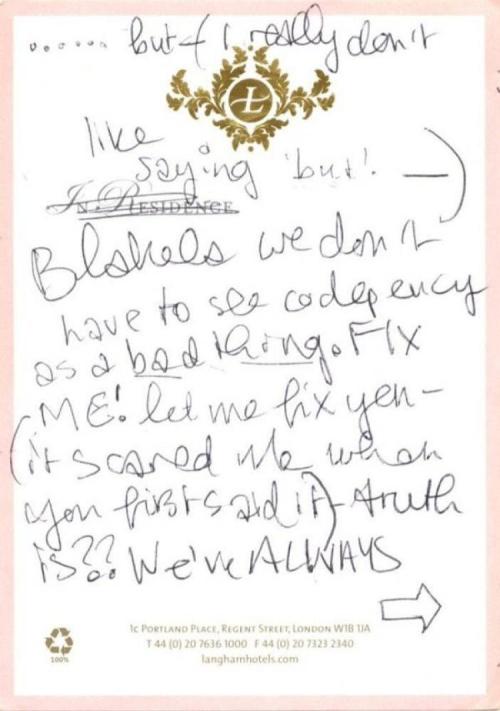 ...... but - (I really don't
L
like
saying 'but'. —)
IN RESIDENCE
we don't
have to see codepency
as a bad thing. FIX
ME! let me fix you -
(it scared me when
you first said it) - truth
is?? We've ALWAYS
100%
1C PORTLAND PLACE, REGENT STREET, LONDON W1B 1JA
T 44 (0) 20 7636 1000 F 44 (0) 20 7323 2340
langhamhotels.com